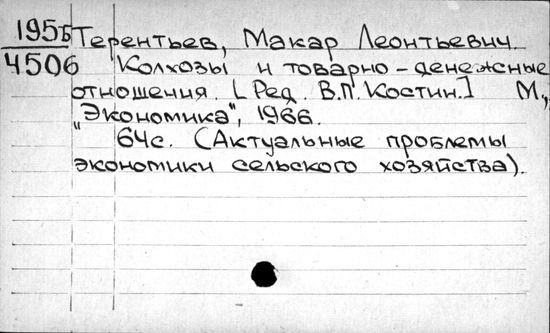 195Б Терентьев, Макар Леонтьевич.
4506 Колхозы и товарно-денежные
отношения. [Ред. В.П. Костин.] М.,
"Экономика", 1966.
64с. (Актуальные проблемы
экономики сельского хозяйства).